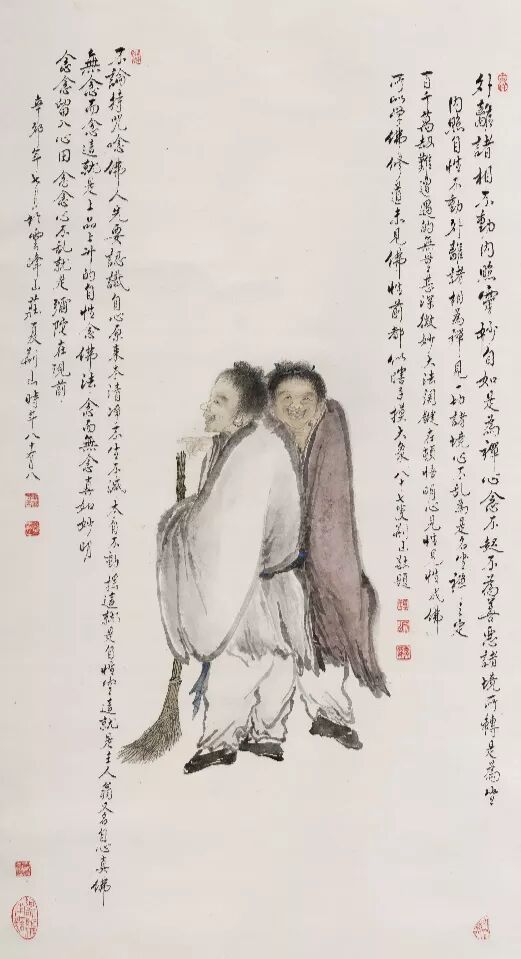 外離諸相不動內照靈妙自如是為禪心念不起不為善惡諸境所轉是為坐
內照自性不動外離諸相為禪見一切諸境心不亂為是名坐禪之定
百千萬劫難遭遇的無上甚深微妙大法關鍵在頓悟明心見性見性成佛
所以學佛修道未見佛性前都似瞎子摸大象 八十七叟荊山敬題
不論持咒唸佛人先要認識自心原來本清淨不生不滅本自不動搖這就是自悟空這就是主人翁又名自心真佛
無念而念這就是上品上升的自性念佛法 念而無念真如妙明
念念留入心田 念念心不乱就是彌陀在現前
辛卯年七月於雲峰山莊夏荊山時年八十有八